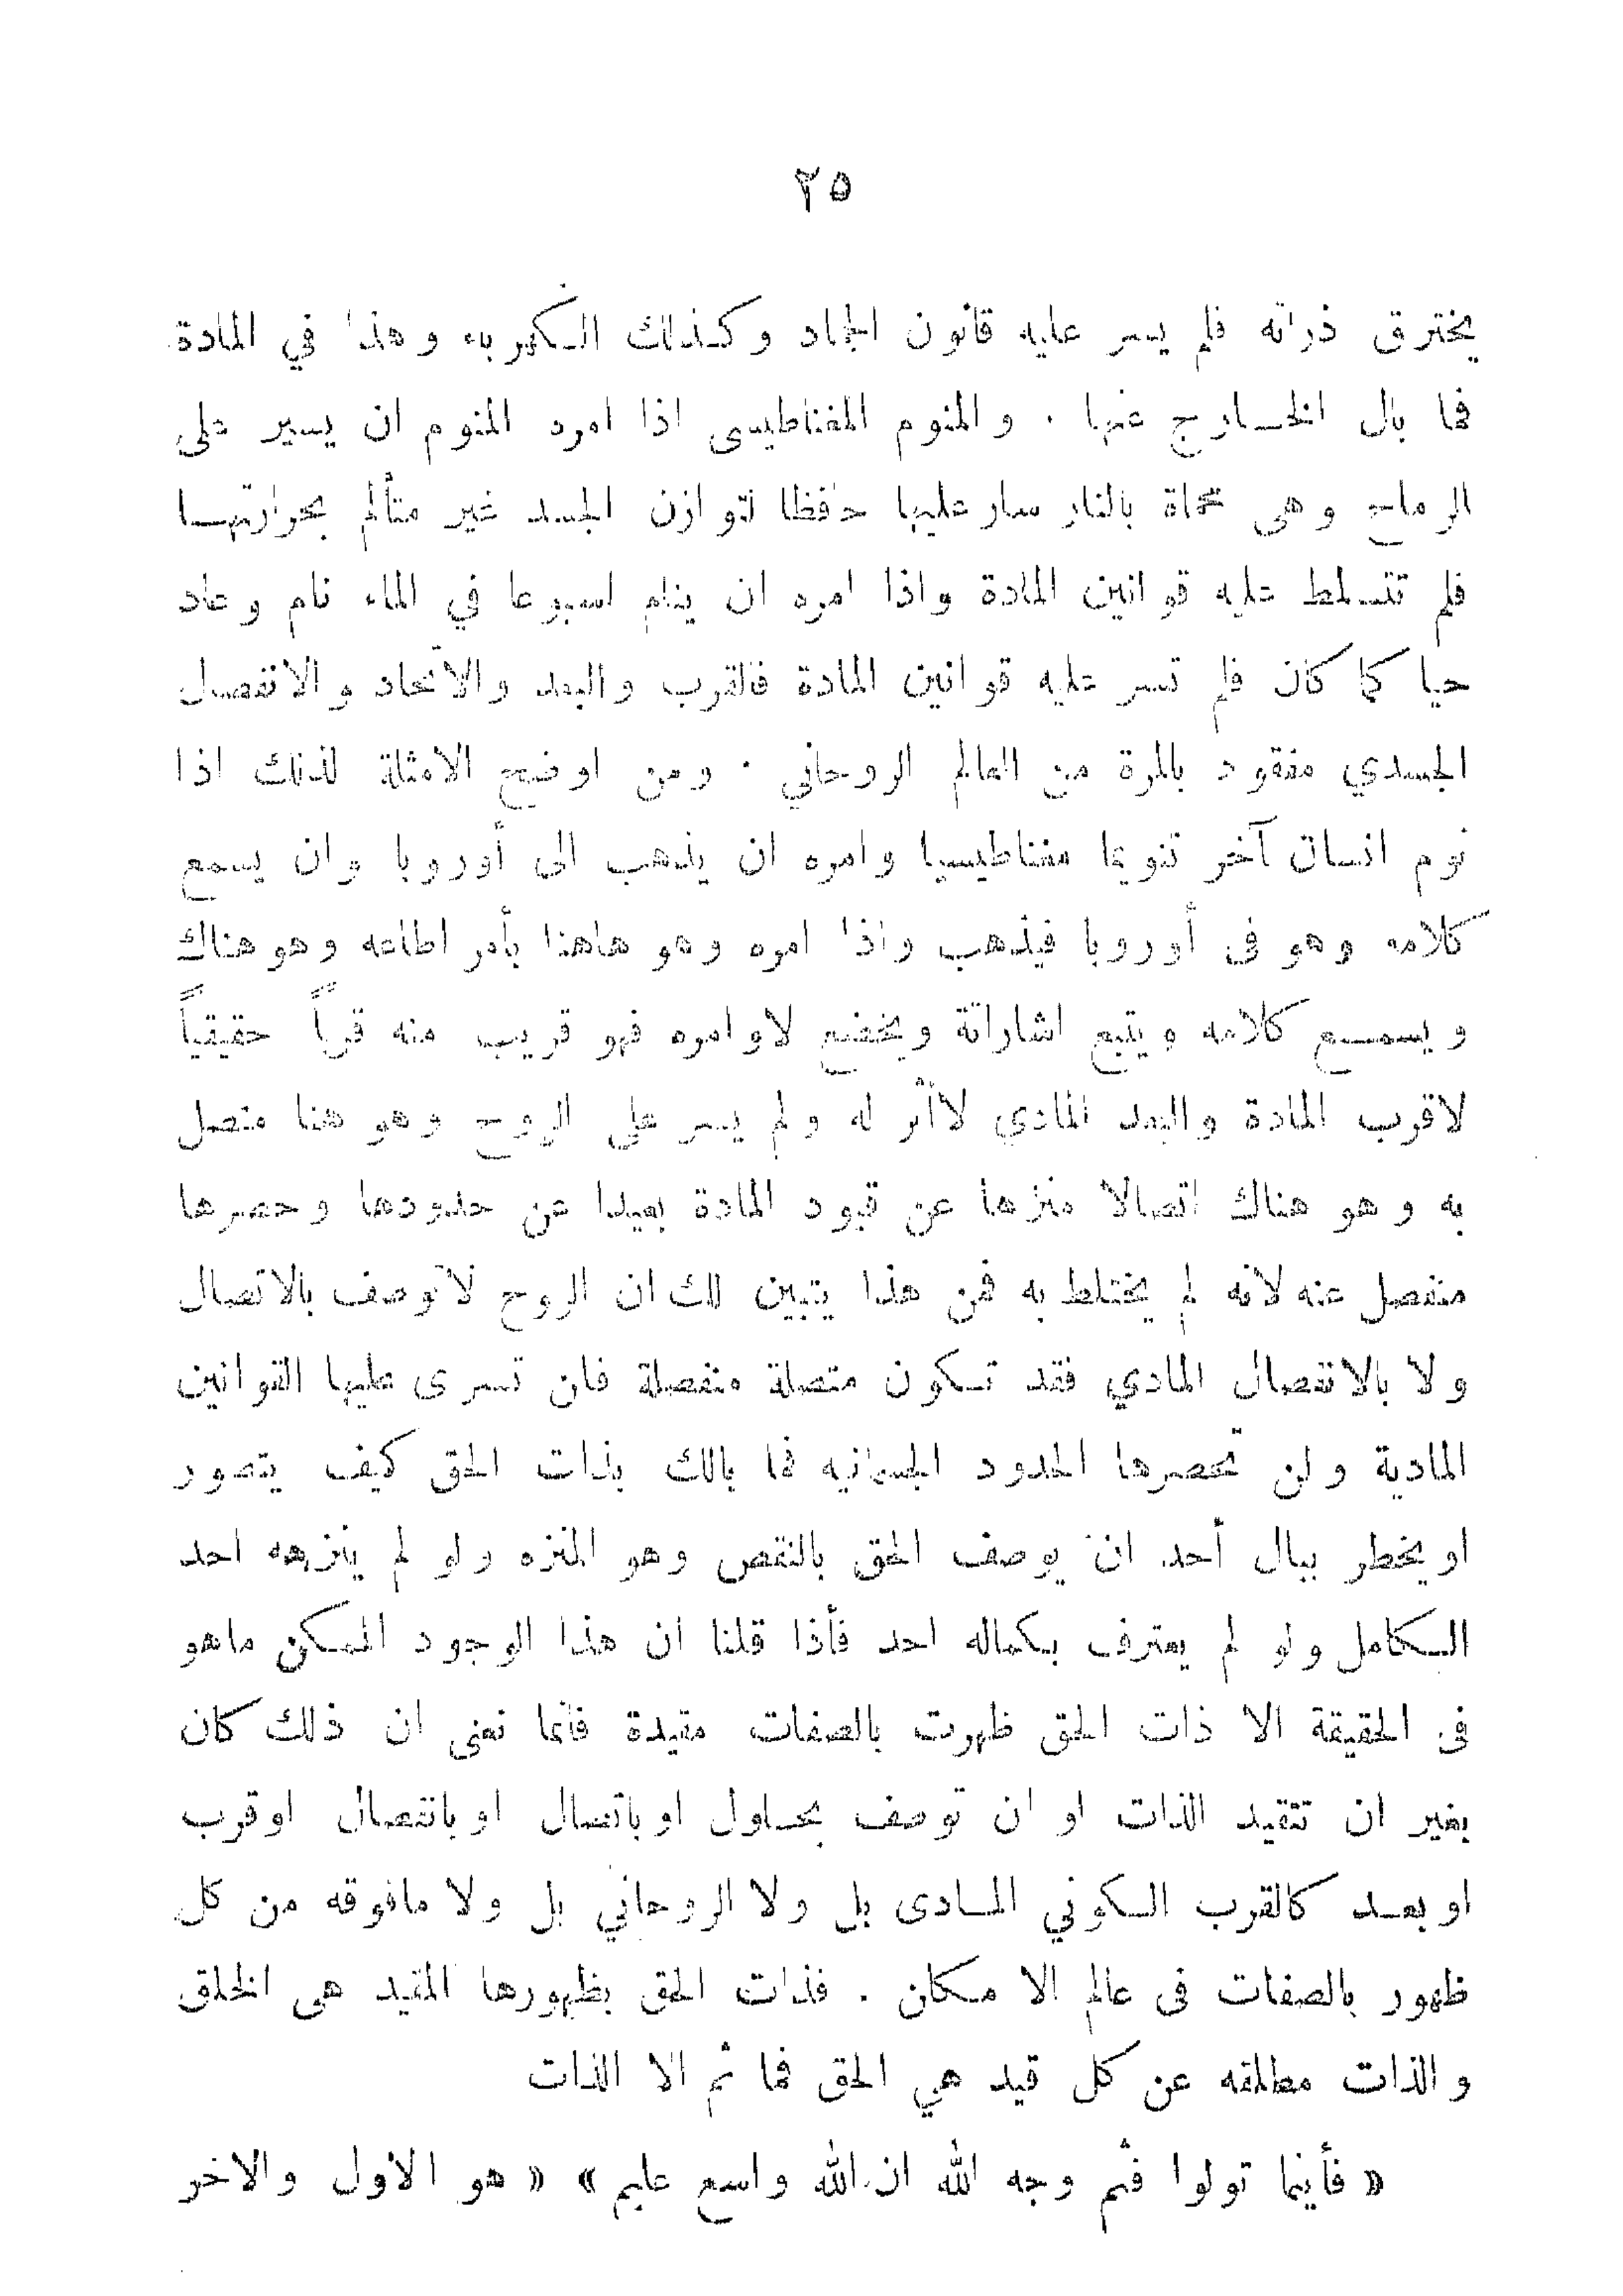 ٢٥
يخترق ذراته فلم يسر عليه قانون الجماد وكذلك الكهرباء وهذا في المادة
فما بال الخارج عنها . والمنوم المغناطيسى اذا امره المنوم ان يسير على
الرماح وهى محماة بالنار سار عليها حافظا لتوازن الجسد غير متألم بحرارتها
فلم تتسلط عليه قوانين المادة واذا امره ان ينام اسبوعا في الماء نام وعاد
حيا كما كان فلم تسر عليه قوانين المادة فالقرب والبعد والاتحاد والانفصال
الجسدي مفقود بالمرة من العالم الروحاني . ومن اوضح الامثلة لذلك اذا
نوم انسان آخر تنويما مغناطيسيا وامره ان يذهب الى أوروبا وان يسمع
كلامه وهو فى أوروبا فيذهب واذا امره وهو هاهنا بأمر اطاعه وهو هناك
ويسمع كلامه ويتبع اشاراته ويخضع لاوامره فهو قريب منه قرباً حقيقياً
لاقرب المادة والبعد المادي لاأثر له ولم يسر على الروح وهو هنا متصل
به وهو هناك اتصالا منزها عن قيود المادة بعيدا عن حدودها وحصرها
منفصل عنه لانه لم يختلط به فمن هذا يتبين لك ان الروح لاتوصف بالاتصال
ولا بالانفصال المادي فقد تكون متصلة منفصلة فلن تسرى عليها القوانين
المادية ولن تحصرها الحدود الجسمانيه فما بالك بذات الحق كيف يتصور
او يخطر ببال أحد ان يوصف الحق بالنقص وهو المنزه ولو لم ينزهه احد
الكامل ولو لم يعترف بكماله احد فأذا قلنا ان هذا الوجود الممكن ماهو
فى الحقيقة الا ذات الحق ظهرت بالصفات مقيدة فأنما نعنى ان ذلك كان
بغير ان تتقيد الذات او ان توصف بحلول او باتصال او بانفصال او قرب
او بعد كالقرب الكوني المادى بل ولا الروحاني بل ولا مافوقه من كل
ظهور بالصفات فى عالم الا مكان . فذات الحق بظهورها المقيد هى الخلق
والذات مطلقه عن كل قيد هي الحق فما ثم الا الذات
« فأينما تولوا فثم وجه الله ان الله واسع عليم » « هو الاول والاخر